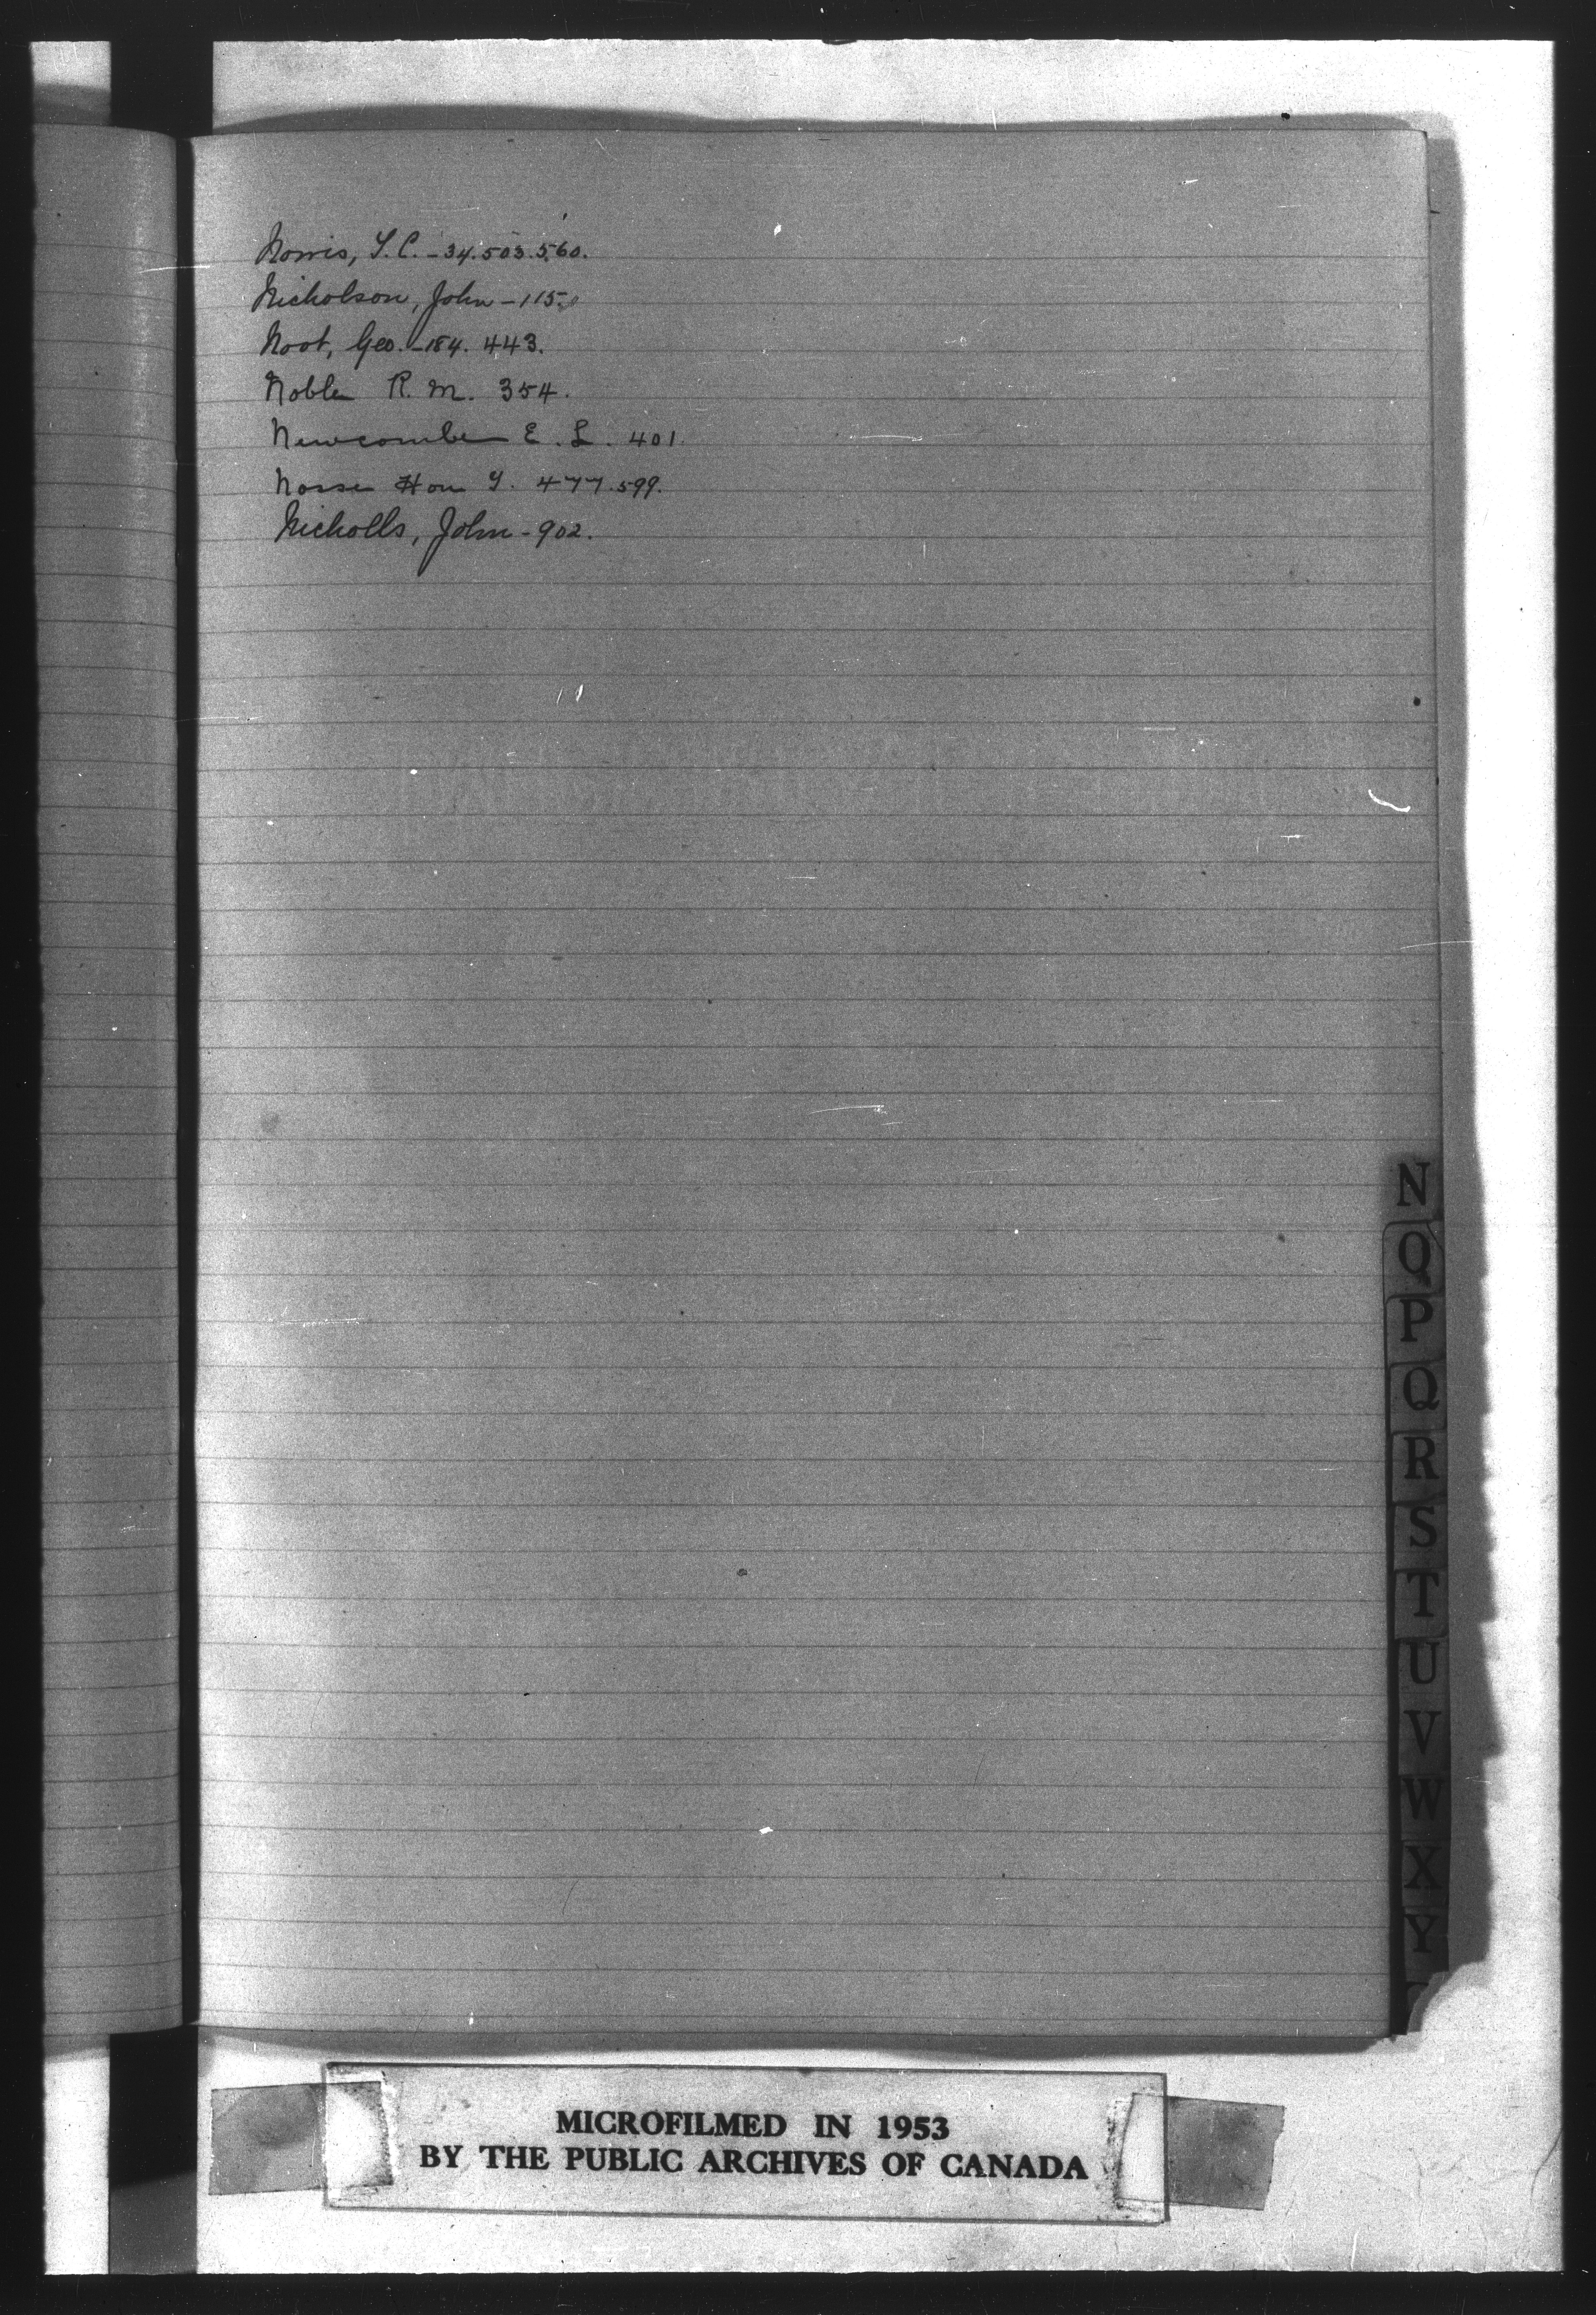 Norris, T.C. - 34. 503. 560.
Nicholson, John - 115.
Noot, Geo. - 184. 443.
Noble R. M. 354.
Newcombe E. L. 401.
Nosse Hon T. 477. 599.
Nicholls, John - 902.
N
O
P
Q
R
S
T
U
V
W
X
Y
MICROFILMED IN 1953
BY THE PUBLIC ARCHIVES OF CANADA